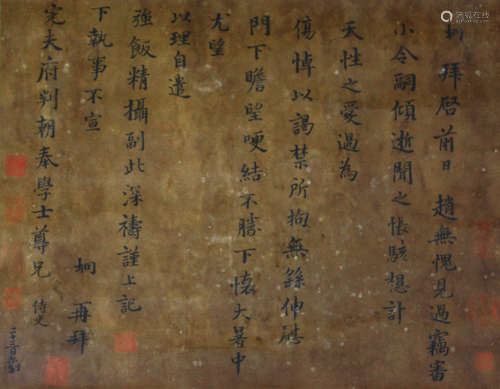 軻拜啓前日趙無愧見過竊審
小令嗣傾逝聞之悵駭想計
天性之愛過為
傷悼以謁禁所拘無繇伸慰
門下瞻望哽結不勝下懷大暑中
尤望
以理自遣
強飯精攝副此深禱謹上記
下執事不宣
軻再拜
完夫府判朝奉學士尊兄
侍史